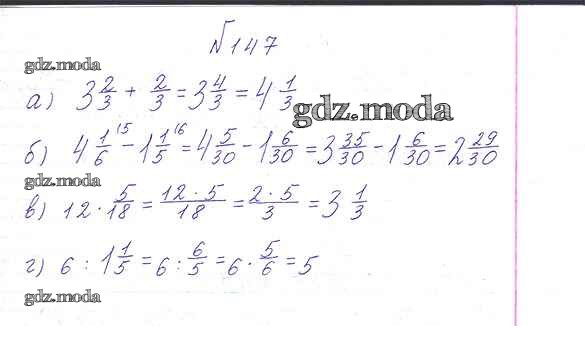 №147
gdz.moda
а) 3 2/3 + 2/3 = 3 4/3 = 4 1/3
gdz.moda
б) 4 1/6 ^15 - 1 1/5 ^16 = 4 5/30 - 1 6/30 = 3 35/30 - 1 6/30 = 2 29/30
gdz.moda
в) 12 · 5/18 = 12 · 5/18 = 2 · 5/3 = 3 1/3
г) 6 : 1 1/5 = 6 : 6/5 = 6 · 5/6 = 5
gdz.moda